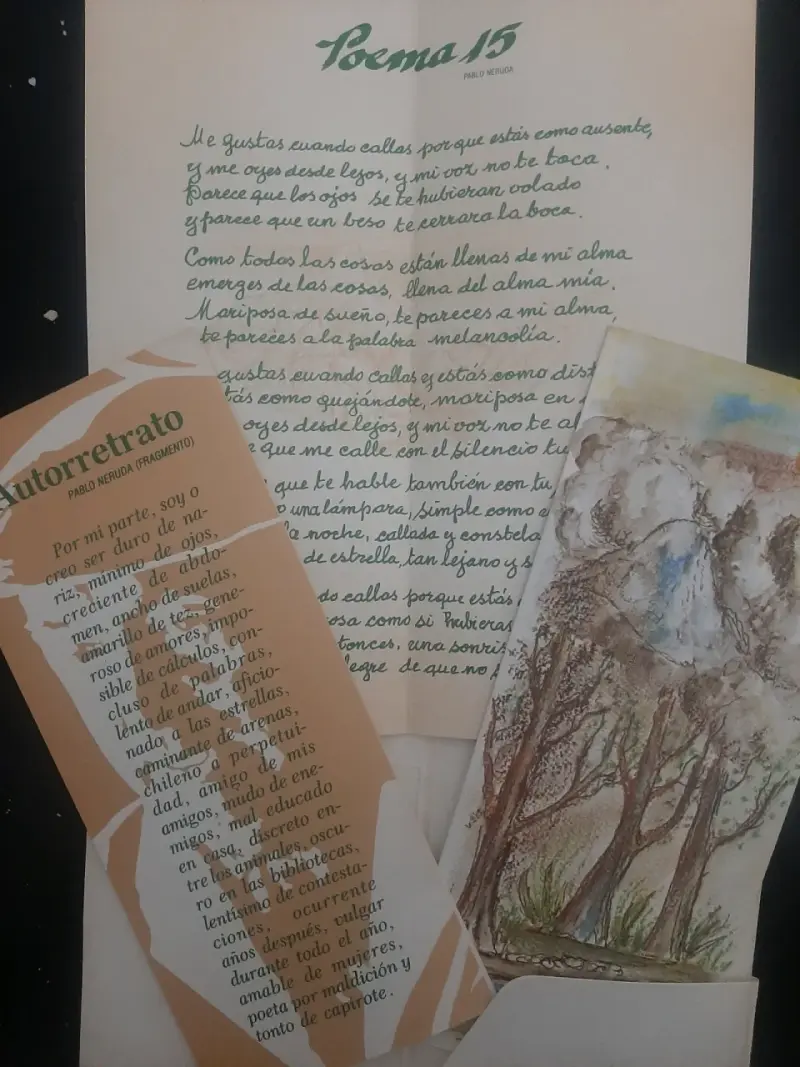 Poema 15
PABLO NERUDA
Me gustas cuando callas porque estás como ausente,
y me oyes desde lejos, y mi voz no te toca.
Parece que los ojos se te hubieran volado
y parece que un beso te cerrara la boca.
Como todas las cosas están llenas de mi alma
emerges de las cosas, llena del alma mía.
Mariposa de sueño, te pareces a mi alma,
te pareces a la palabra melancolía.
gustas cuando callas y estás como dist
tás como quejándote, mariposa en
oyes desde lejos, y mi voz no te al
que me calle con el silencio tu
que te hable también con tu
una lámpara, simple como
la noche, callada y constela
de estrella, tan lejano y s
do callas porque estás
osa como si hubieras
tonces, una sonris
legre de que no
Autorretrato
PABLO NERUDA (FRAGMENTO)
Por mi parte, soy o
creo ser duro de na-
riz, mínimo de ojos,
creciente de abdo-
men, ancho de suelas,
amarillo de tez, gene-
roso de amores, impo-
sible de cálculos, con-
cluso de palabras,
lento de andar, aficio-
nado a las estrellas,
caminante de arenas,
chileno a perpetui-
dad, amigo de mis
amigos, mudo de ene-
migos, mal educado
en casa, discreto en-
tre los animales, oscu-
ro en las bibliotecas,
lentísimo de contesta-
ciones, ocurrente
años después, vulgar
durante todo el año,
amable de mujeres,
poeta por maldición y
tonto de capirote.